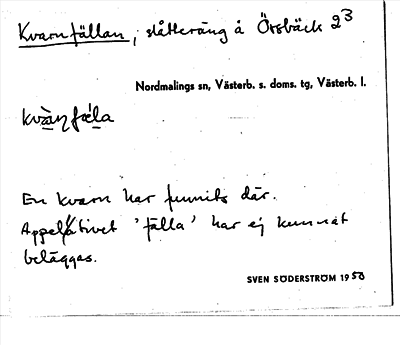 Kvarnfällan, slåtteräng å Örsbäck 2³
Nordmalings sn, Västerb. s. doms. tg, Västerb. l.
En kvarn har funnits där.
Appellativet 'fälla' har ej kunnat
beläggas.
SVEN SÖDERSTRÖM 1958